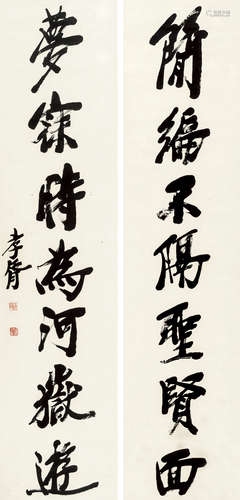 簡編不隔聖賢面
夢寐時為河嶽遊
孝胥